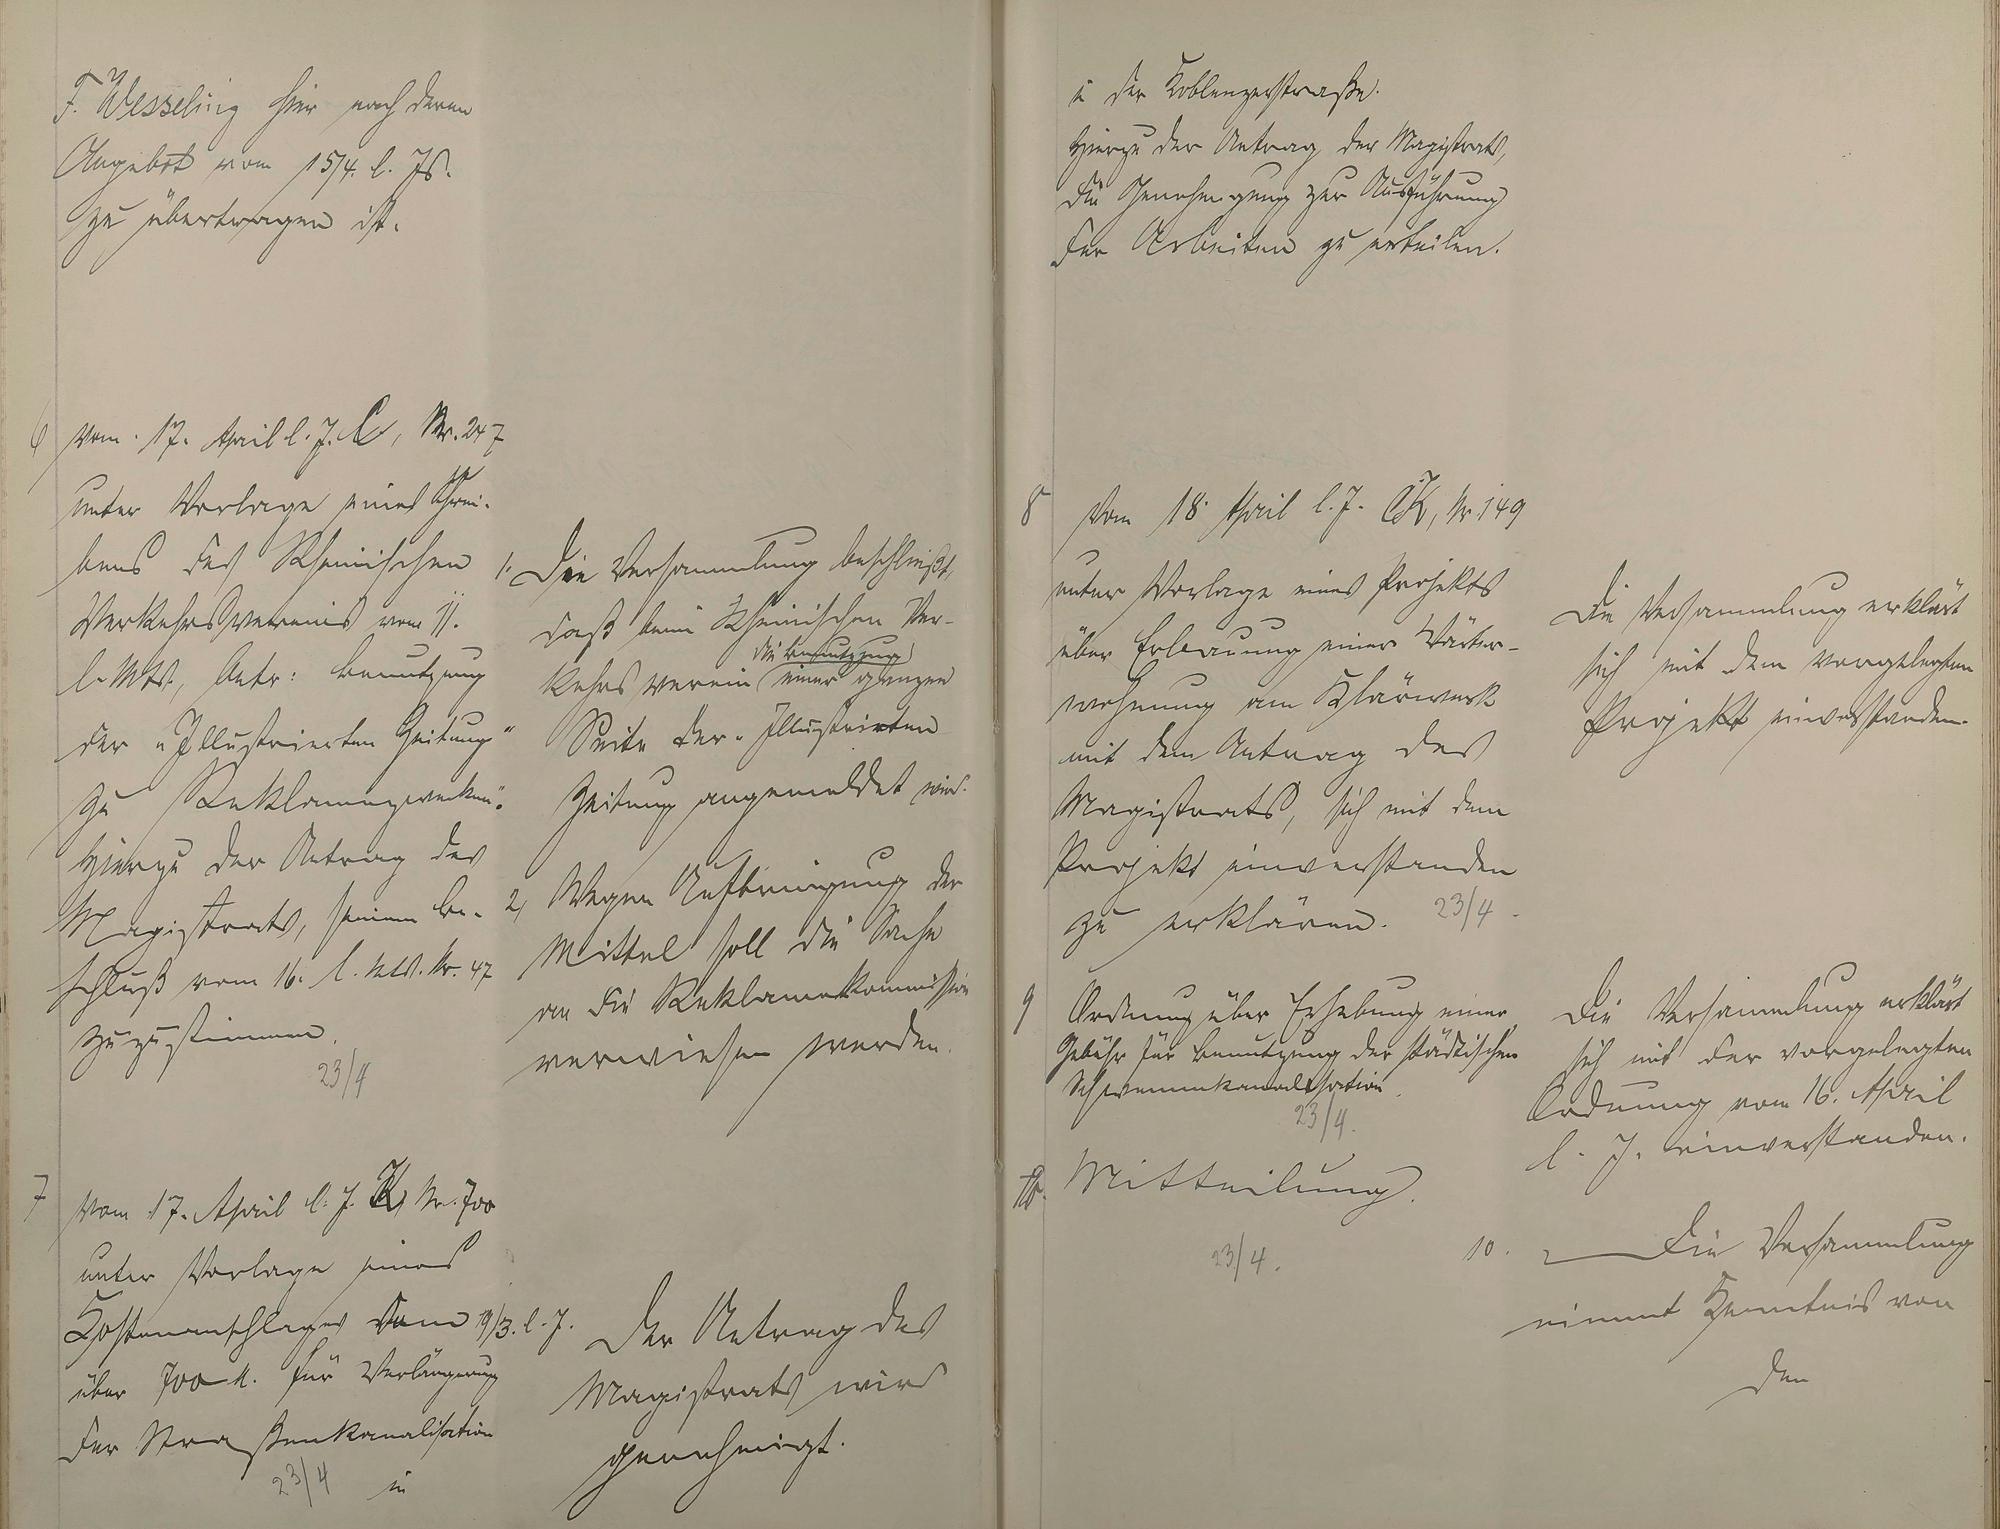 F. Wesseling hier nach deren
Angebot vom 15/4. l. Js.
zu übertragen ist.
6 vom 17. April l. J. C, Nr. 247
unter Vorlage eines Schrei-
bens des Rheinischen
Verkehrsvereins vom 11.
l. Mts., betr: Benutzung
der "Illustrierten Zeitung"
zu Reklamezwecken".
Hierzu der Antrag des
Magistrats, seinem Be-
schluß vom 16. l. Mts. Nr. 47
zuzustimmen.
23/4
1. Die Versammlung beschließt,
daß beim Rheinischen Ver-
die Benutzung
kehrsverein einer ganzen
Seite der "Illustrierten
Zeitung angemeldet wird.
2, Wegen Aufbringung der
Mittel soll die Sache
an die Reklamekommission
verwiesen werden.
7 vom 17. April l. J. K, Nr. 700
unter Vorlage eines
Kostenanschlages vom 19/3. l. J.
über 700 M. für Verlängerung
der Straßenkanalisation
23/4 in
Der Antrag des
Magistrats wird
genehmigt.
in der Koblenzerstraße.
Hierzu der Antrag des Magistrats,
die Genehmigung zur Ausführung
der Arbeiten zu erteilen.
8 vom 18. April l. J. K, Nr. 149
unter Vorlage eines Projekts
über Erbauung einer Wärter-
wohnung am Klärwerk
mit dem Antrag des
Magistrats, sich mit dem
Projekt einverstanden
zu erklären. 23/4
Die Versammlung erklärt
sich mit dem vorgelegten
Projekt einverstanden.
9 Ordnung über Erhebung einer
Gebühr für Benutzung der städtischen
Schwemmkanalisation.
23/4.
Die Versammlung erklärt
sich mit der vorgelegten
Ordnung vom 16. April
l. J. einverstanden.
10. Mitteilung.
23/4.
10. Die Versammlung
nimmt Kenntnis von
den